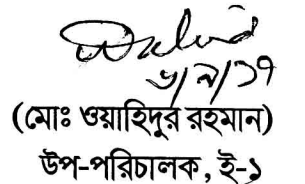 ৬/৯/১৭
(মোঃ ওয়াহিদুর রহমান)
উপ-পরিচালক, ই-১